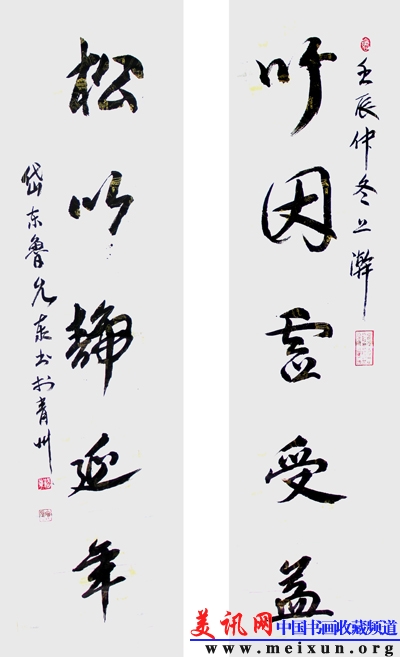 壬辰仲冬上澣
竹因虚受益
松以静延年
岱东鲁先泉书於青州
美讯网 中国书画收藏频道
www.meixun.org